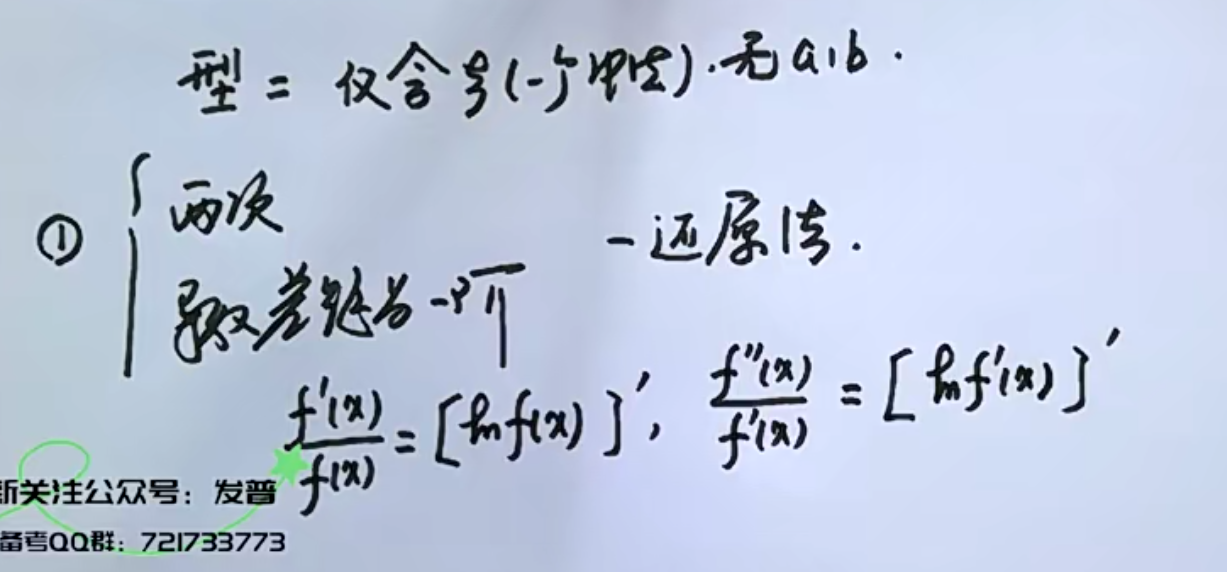 型 = 仅含ξ(一个中值).无a,b.
① { 两项 -还原法.
导数差距为一阶
f'(x)/f(x) = [ln f(x)]', f''(x)/f'(x) = [ln f'(x)]'
新关注公众号：发普
备考QQ群：721733773